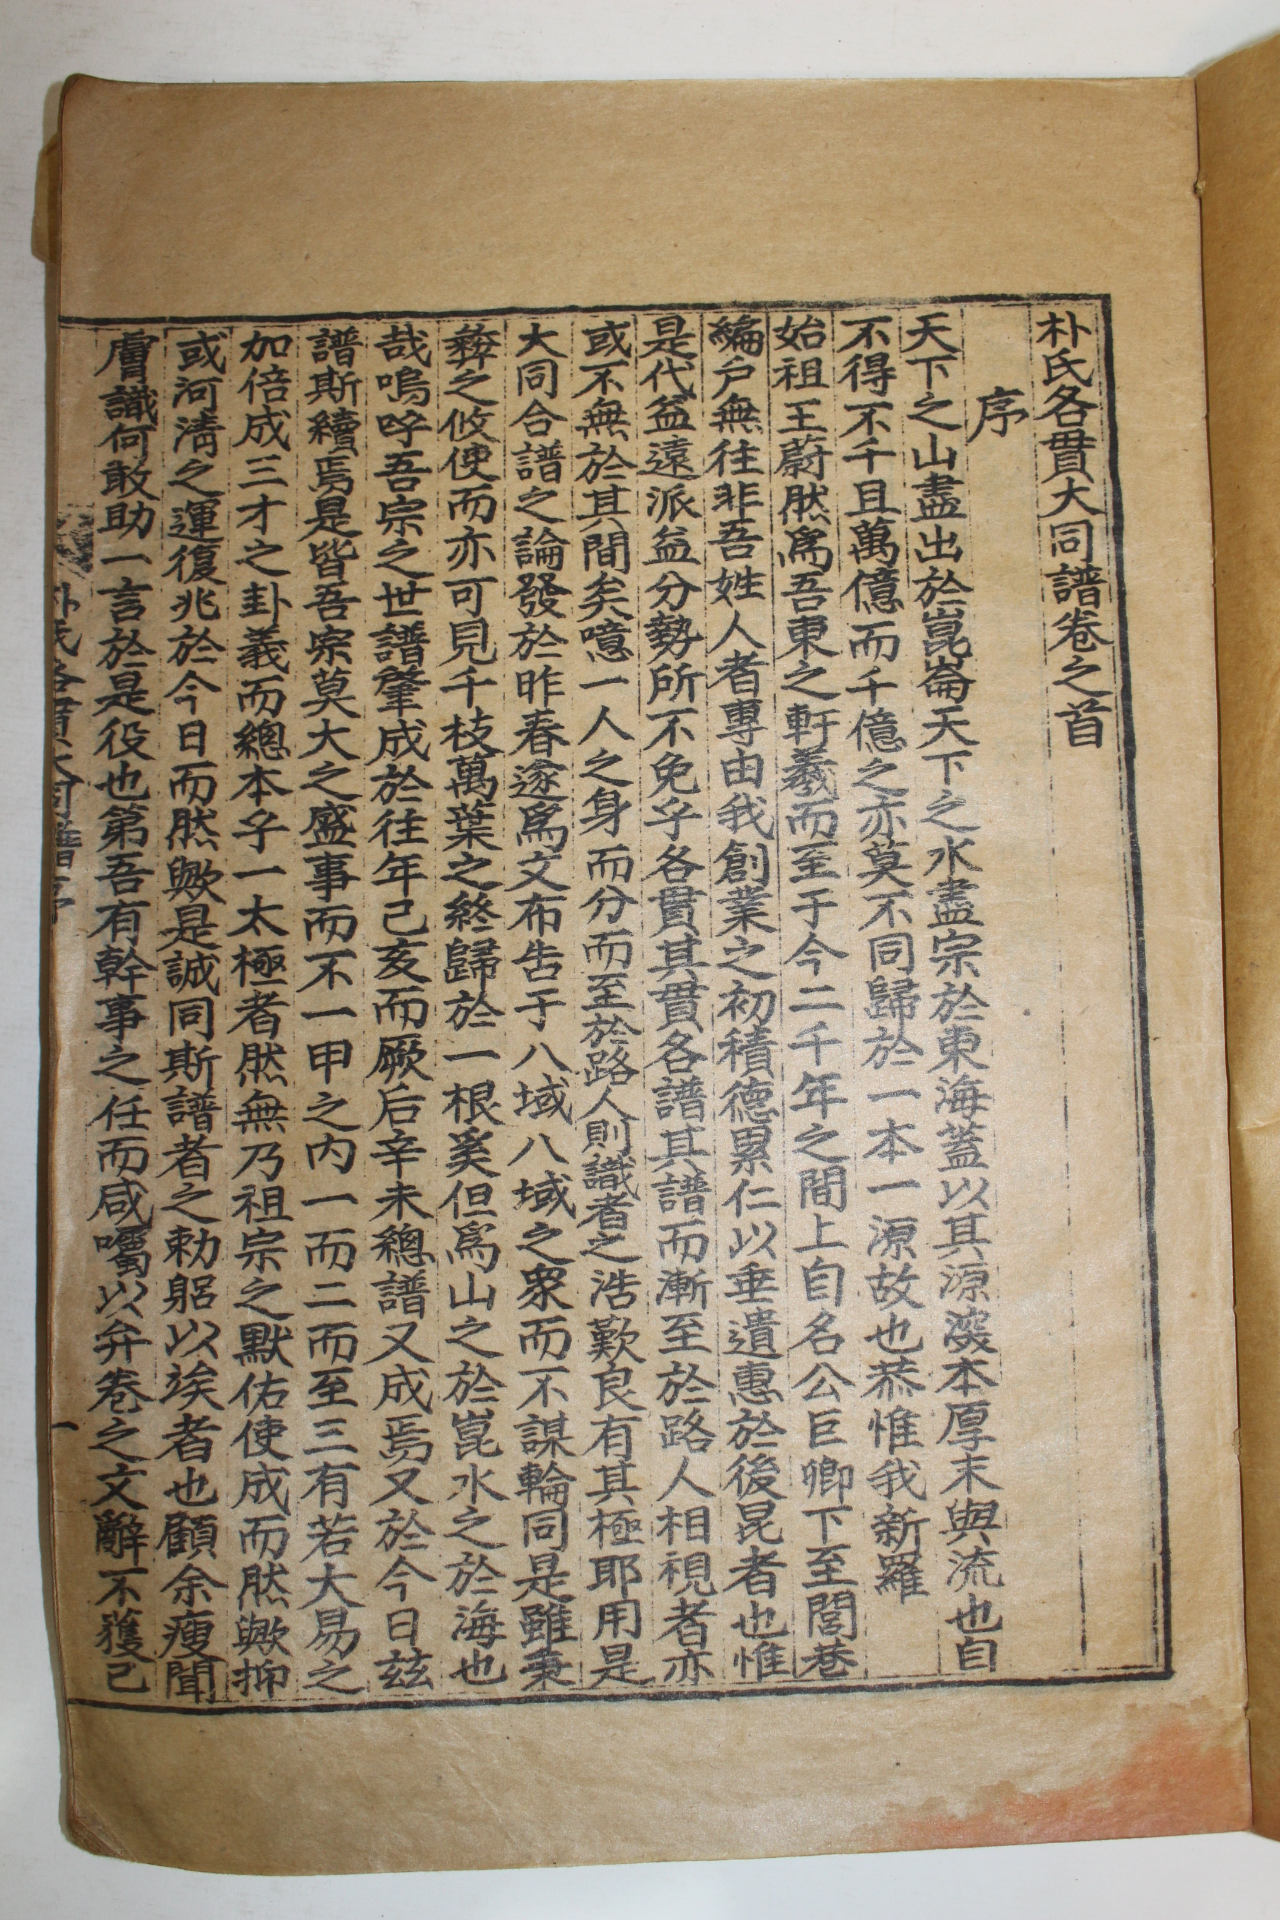 朴氏各貫大同譜卷之首
序
天下之山盡出於崑崙天下之水盡宗於東海蓋以其源深本厚末與流也自
不得不千且萬億而千億之亦莫不同歸於一本一源故也恭惟我新羅
始祖王蔚然爲吾東之軒羲而至于今二千年之間上自名公巨卿下至閭巷
編戶無往非吾姓人者專由我創業之初積德累仁以垂遺惠於後昆者也惟
是代益遠派益分勢所不免乎各貫其貫各譜其譜而漸至於路人相視者亦
或不無於其間矣噫一人之身而分而至於路人則識者之浩歎良有其極耶用是
大同合譜之論發於昨春遂爲文布告于八域八域之衆而不謀輪同是雖秉
彜之攸使而亦可見千枝萬葉之終歸於一根奚但爲山之於崑水之於海也
哉嗚呼吾宗之世譜肇成於往年己亥而厥后辛未總譜又成焉又於今日玆
譜斯續焉是皆吾宗莫大之盛事而不一甲之內一而二而至三有若大易之
加倍成三才之卦義而總本乎一太極者然無乃祖宗之默佑使成而然歟抑
或河淸之運復兆於今日而然歟是誠同斯譜者之勑躬以竢者也顧余瘦聞
膚識何敢助一言於是役也第吾有幹事之任而咸囑以弁卷之文辭不獲已
朴氏各貫大同譜序
一